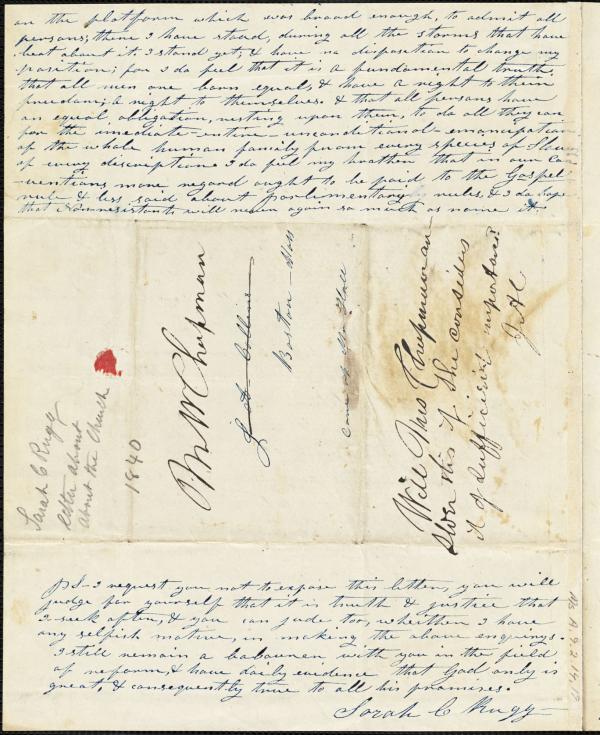 on the platform which was broad enough, to admit all
persons, there I have stood, during all the storms that have
beat about it. I stand yet, & have no disposition to change my
position; for I do feel that it is a fundamental truth,
that all men one born equal, & have a right to their
freedom; a right to themselves. & that all persons have
an equal, obligation, resting upon them, to do all they can
for the imediate-entire-unconditional-emancipation
of the whole human family from every species of Slavery
of every discription. I do feel my brother that in our con
ventions more regard ought to be paid to the Gospel
rule & less said about parlimentary rules, & I do hope
that Nonresistants will never again so much as name it.
M W Chapman
J A Collins
Boston - Mass
care of
Will Mrs Chapman an
swer this if she considers
it of sufficient importance
J.A.C
Sarah C Rugg
letter about
about the Church
1840
P.S. I request you not to expose this letter, you will
judge for yourself that it is truth & justice that
I seek after, & you can jude too, wheither I have
any selfish motive, in making the above enqirys.
I still remain a labourer with you in the field
of reform, & have daily evidence that God only is
great, & consequently true to all his promises.
Sarah C Rugg
Ms. A.9.2.14.